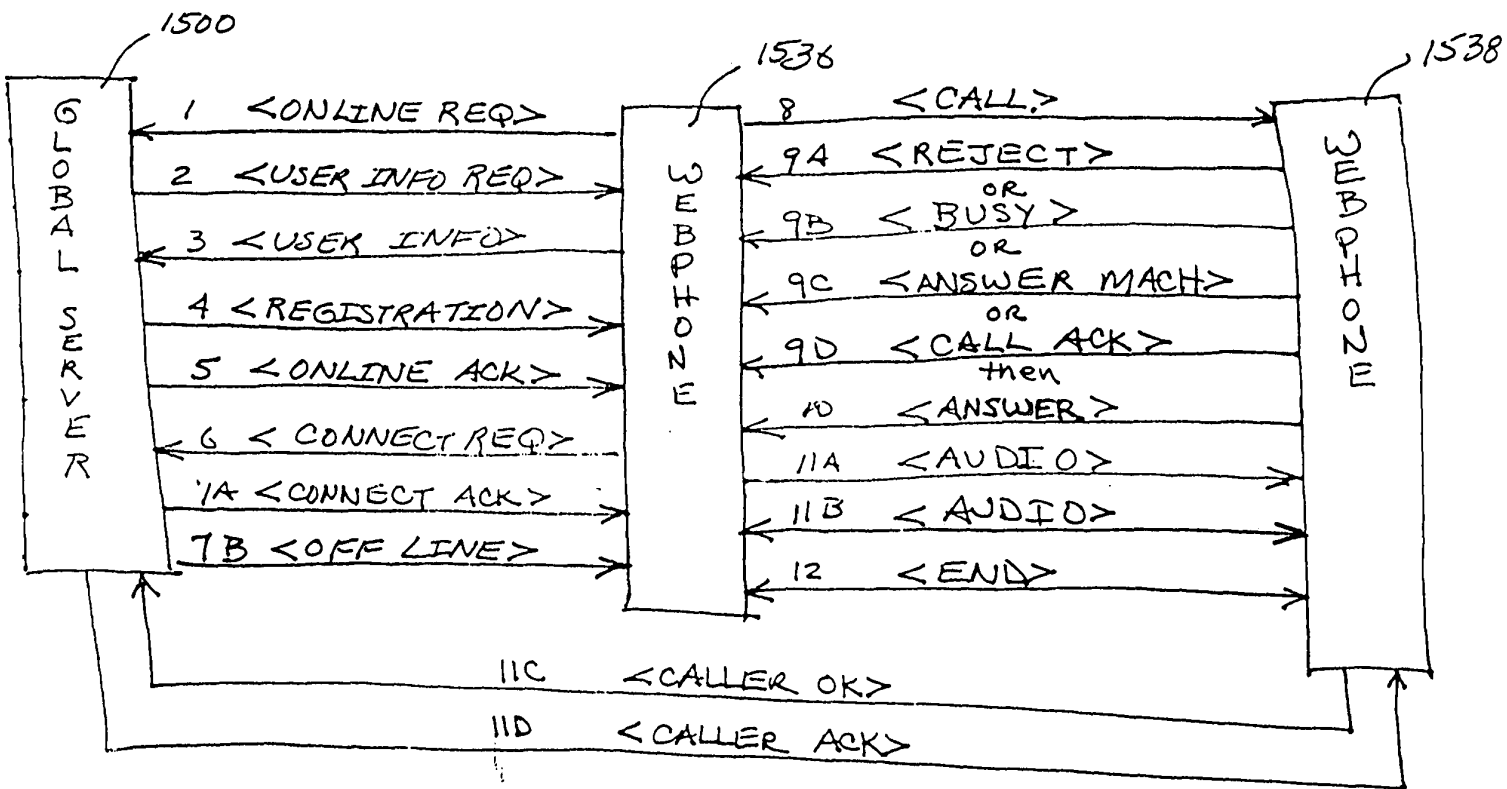 1500
1536
1538
GLOBAL SERVER
1 <ONLINE REQ>
2 <USER INFO REQ>
3 <USER INFO>
4 <REGISTRATION>
5 <ONLINE ACK>
6 <CONNECT REQ>
7A <CONNECT ACK>
7B <OFF LINE>
WEBPHONE
8 <CALL>
9A <REJECT>
OR
9B <BUSY>
OR
9C <ANSWER MACH>
OR
9D <CALL ACK>
then
10 <ANSWER>
11A <AUDIO>
11B <AUDIO>
12 <END>
WEBPHONE
11C <CALLER OK>
11D <CALLER ACK>